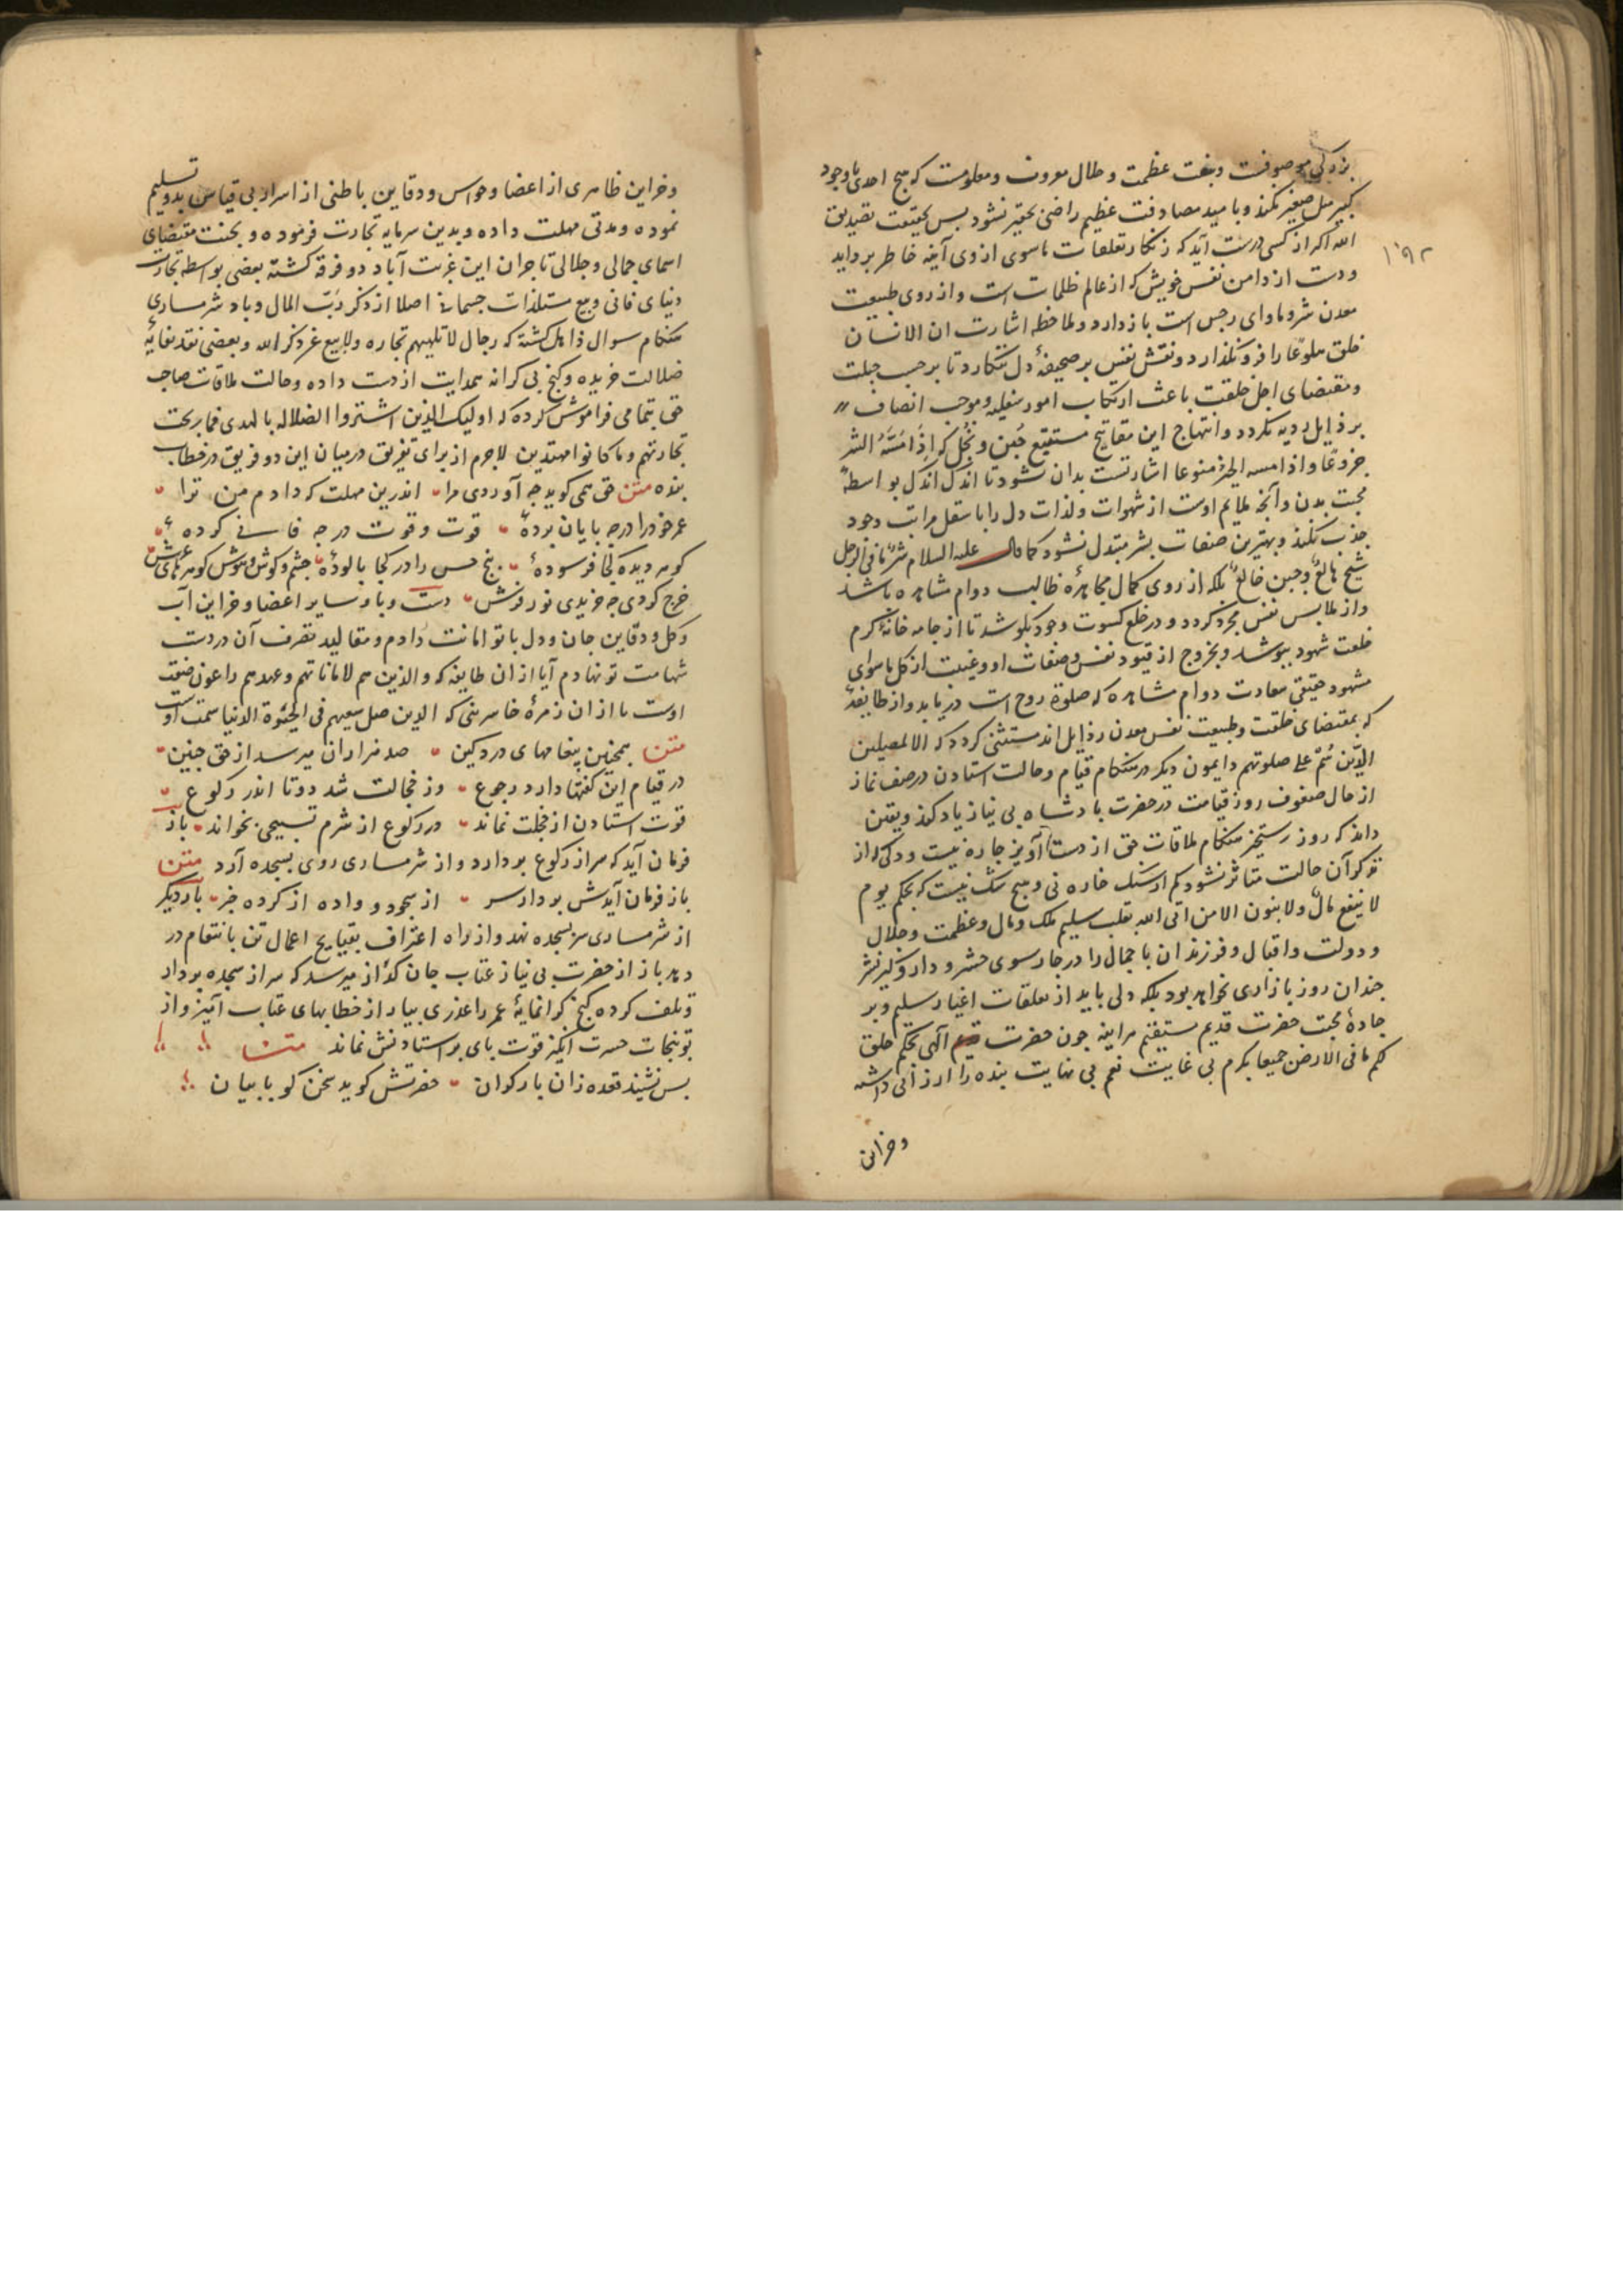 بزرگی موصوفست و بنعت عظمت و جلال معروف و معلومست که هیچ احدی با وجود
کبیر میل صغیر نکند و بامید مصادفت عظیم راضی بحقیر نشود پس بحقیقت تصدیق
الله اکبر از کسی درست آید که زنکار تعلقات ماسوی از روی آینه خاطر بزداید
۱۹۲
و دست از دامن نفس خویش که از عالم ظلمات است و از روی طبیعت
معدن شر و ماوای رجس است باز دارد و ملاحظه اشارت ان الانسان
خلق هلوعا را فرو نکذارد و نقش نفس بر صحیفهٔ دل ننکارد تا بر حسب جبلت
و مقتضای اصل خلقت باعث ارتکاب امور سفلیه و موجب اتصاف
برذایل ردیه نکردد و انتهاج این مقابح مستتبع جبن و بخل که اذا مسه الشر
جزوعا و اذا مسه الخیر منوعا اشارتست بدان نشود تا اندک اندک بواسطهٔ
محبت بدن و آنچه ملایم اوست از شهوات و لذات دل را باسفل مراتب وجود
جذب نکند و بهترین صفات بشر مبتدل نشود کما قال علیه السلام شر ما فی الرجل
شح هالع و جبن خالع بلکه از روی کمال مجاهدهٔ طالب دوام مشاهده باشد
و از ملابس نفس مجرد کردد و در خلع کسوت وجود بکوشد تا از جامه خانهٔ کرم
خلعت شهود بپوشد و بخروج از قیود نفس و صفات او و غیبت از کل ماسوای
مشهود حقیقی سعادت دوام مشاهده که صلوة روح است دریابد و از طایفهٔ
که بمقتضای خلقت و طبیعت نفس معدن رذایل اند مستثنی کردد که الا المصلین
الذین هم علی صلوتهم دایمون دیکر در هنکام قیام و حالت استادن در صف نماز
از حال صفوف روز قیامت در حضرت پادشاه بی نیاز یاد کند و یقین
داند که روز رستخیز هنکام ملاقات حق از دست آویز چاره نیست و دلی که از
تذکر آن حالت متاثر نشود کم از سنک خاره نی و هیچ شک نیست که بحکم یوم
لا ینفع مال و لا بنون الا من اتی الله بقلب سلیم ملک و مال و عظمت و جلال
و دولت و اقبال و فرزندان با جمال را در چارسوی حشر و دار و کیر نشر
چندان روز بازاری نخواهد بود بلکه دلی باید از تعلقات اغیار سلیم و بر
جادهٔ محبت حضرت قدیم مستقیم هراینه چون حضرت الهی بحکم خلق
لکم ما فی الارض جمیعا بکرم بی غایت نعم بی نهایت بنده را ارزانی داشته
و خزاین
و خزاین ظاهری از اعضا و حواس و دفاین باطنی از اسرار بی قیاس بدو تسلیم
نموده و مدتی مهلت داده و بدین سرمایه تجارت فرموده و بحسب مقتضای
اسمای جمالی و جلالی تاجران این غربت آباد دو فرقه کشته بعضی بواسطه تجارت
دنیای فانی و بیع مستلذات جسمانی اصلا از ذکر رب المال و یاد شرمساری
هنکام سوال ذاهل کشته که رجال لا تلهیهم تجاره ولا بیع عن ذکر الله و بعضی نقد نفایه
ضلالت خریده و کنج بی کرانه هدایت از دست داده و حالت ملاقات صاحب
حق بتمامی فراموش کرده که اولیک الذین اشتروا الضلاله بالهدی فما ربحت
تجارتهم و ما کانوا مهتدین لاجرم از برای تفریق درمیان این دو فریق در خطاب
بنده متن حق همی کوید چه آوردی مرا اندرین مهلت که دادم من ترا
عمر خود را در چه پایان بردهٔ قوت و قوت در چه فانی کردهٔ
کوهر دیده کجا فرسودهٔ پنج حس را در کجا پالودهٔ چشم و کوش و هوش کوهرهای عرش
خرج کردی چه خریدی تو ز فرش دست و پا و سایر اعضا و خزاین آب
و کل و دفاین جان و دل با تو امانت دادم و مقالید تصرف آن در دست
شهامت تو نهادم آیا از ان طایفه که و الذین هم لاماناتهم و عهدهم راعون صفت
اوست یا از ان زمرهٔ خاسرینی که الذین ضل سعیهم فی الحیوة الدنیا سمت اوست
متن همچنین پیغامهای دردکین صد هزاران میرسد از حق چنین
در قیام این کفتها دارد رجوع وز خجالت شد دوتا اندر رکوع
قوت استادن از خجلت نماند در رکوع از شرم تسبیحی بخواند باز
فرمان آید که سر از رکوع بردارد و از شرمساری روی بسجده آرد متن
باز فرمان آیدش بردار سر از سجود و واده از کرده خبر بار دیکر
از شرمساری سر بسجده نهد و از راه اعتراف بقبایح اعمال تن بانتقام در
دهد باز از حضرت بی نیاز عتاب جان کداز میرسد که سر از سجده بردار
و تلف کرده کنج کرانمایهٔ عمر را عذری بیار از خطابهای عتاب آمیز و از
توبیخات حسرت انکیز قوت پای بر استادنش نماند متن
پس نشیند قعده زان بار کران حضرتش کوید سخن کو با بیان